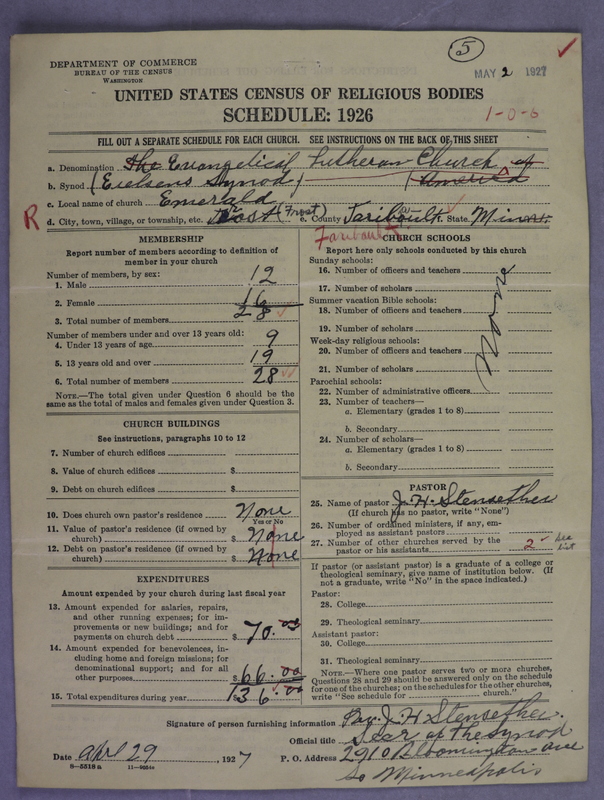 5
DEPARTMENT OF COMMERCE
BUREAU OF THE CENSUS
WASHINGTON
MAY 2 1927
UNITED STATES CENSUS OF RELIGIOUS BODIES
SCHEDULE: 1926
1-0-6
FILL OUT A SEPARATE SCHEDULE FOR EACH CHURCH. SEE INSTRUCTIONS ON THE BACK OF THIS SHEET
a. Denomination The Evangelical Lutheran Church of
b. Synod (Eielsens Synod) America
c. Local name of church Emerald
R d. City, town, village, or township, etc. (Frost) e. County Faribault State Minn.
Faribault
MEMBERSHIP
Report number of members according to definition of
member in your church
Number of members, by sex:
1. Male 12
2. Female 16
3. Total number of members 28
Number of members under and over 13 years old:
4. Under 13 years of age 9
5. 13 years old and over 19
6. Total number of members 28
NOTE.—The total given under Question 6 should be the
same as the total of males and females given under Question 3.
CHURCH BUILDINGS
See instructions, paragraphs 10 to 12
7. Number of church edifices
8. Value of church edifices $
9. Debt on church edifices $
10. Does church own pastor's residence None
Yes or No
11. Value of pastor's residence (if owned by
church) $ None
12. Debt on pastor's residence (if owned by
church) $ None
EXPENDITURES
Amount expended by your church during last fiscal year
13. Amount expended for salaries, repairs,
and other running expenses; for im-
provements or new buildings; and for
payments on church debt $ 70.00
14. Amount expended for benevolences,
including home and foreign missions; for
denominational support; and for all
other purposes $ 66.00
15. Total expenditures during year $ 136.00
CHURCH SCHOOLS
Report here only schools conducted by this church
Sunday schools:
16. Number of officers and teachers
17. Number of scholars
Summer vacation Bible schools:
18. Number of officers and teachers
19. Number of scholars
Week-day religious schools:
20. Number of officers and teachers
21. Number of scholars
None
Parochial schools:
22. Number of administrative officers
23. Number of teachers—
a. Elementary (grades 1 to 8)
b. Secondary
24. Number of scholars—
a. Elementary (grades 1 to 8)
b. Secondary
PASTOR
25. Name of pastor J. H. Stensether
(If church has no pastor, write "None")
26. Number of ordained ministers, if any, em-
ployed as assistant pastors
27. Number of other churches served by the
pastor or his assistants 2 - See
list
If pastor (or assistant pastor) is a graduate of a college or
theological seminary, give name of institution below. (If
not a graduate, write "No" in the space indicated.)
Pastor:
28. College
29. Theological seminary
Assistant pastor:
30. College
31. Theological seminary
NOTE.—Where one pastor serves two or more churches,
Questions 28 and 29 should be answered only on the schedule
for one of the churches; on the schedules for the other churches,
write "See schedule for church."
Signature of person furnishing information Rev. J. H. Stensether.
Official title Secr of the Synod
Date April 29, 1927 P. O. Address 2910 Bloomington Ave
8—5318 a
So Minneapolis